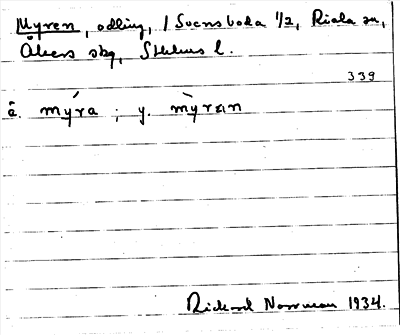 Myren, odling, 1 Svensboda 1/2, Riala sn,
Åkers skg, Sthlms l.
339
å. mýra ; y. mỳrɛn
Rickard Norrman 1934.